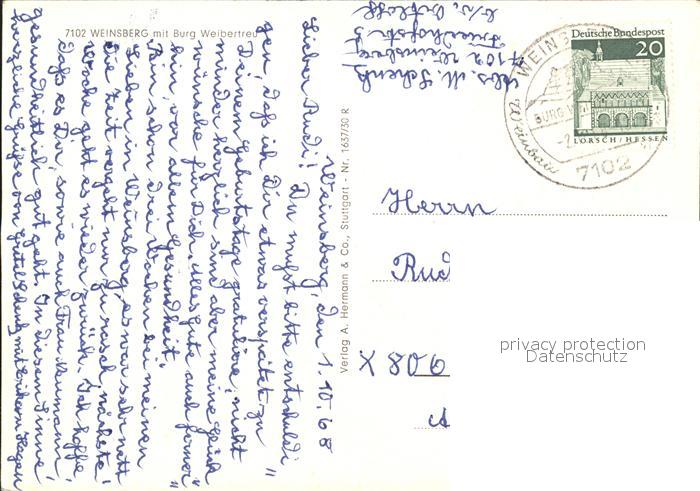 7102 WEINSBERG mit Burg Weibertreu
Weinsberg, den 1.10.68
Lieber Rudi! Du mußt bitte entschuldi=
gen, daß ich Dir etwas verspätet zu
Deinem Geburtstage gratuliere, nicht
minder herzlich sind aber meine Glück=
wünsche für Dich. Alles Gute auch ferner=
hin, vor allem Gesundheit.
Bin schon drei Wochen bei meinen
Lieben in Weinsberg, es war sehr nett
die Zeit vergeht nur zu rasch, nächste
Woche geht es wieder zurück. Ich hoffe,
daß es Dir, sowie auch Frau Neumann,
gesundheitlich gut geht. In diesem Sinne,
herzliche Grüße von Schenk mit
Verlag A. Hermann & Co., Stuttgart - Nr. 1637/30 R
Abs. M. Schenk
7102 Weinsberg
Friedhofstr. 5
Deutsche Bundespost
20
LORSCH / HESSEN
WEINSB
BURG
Weinbau
7102
Herrn
Rud
X 806
privacy protection
Datenschutz